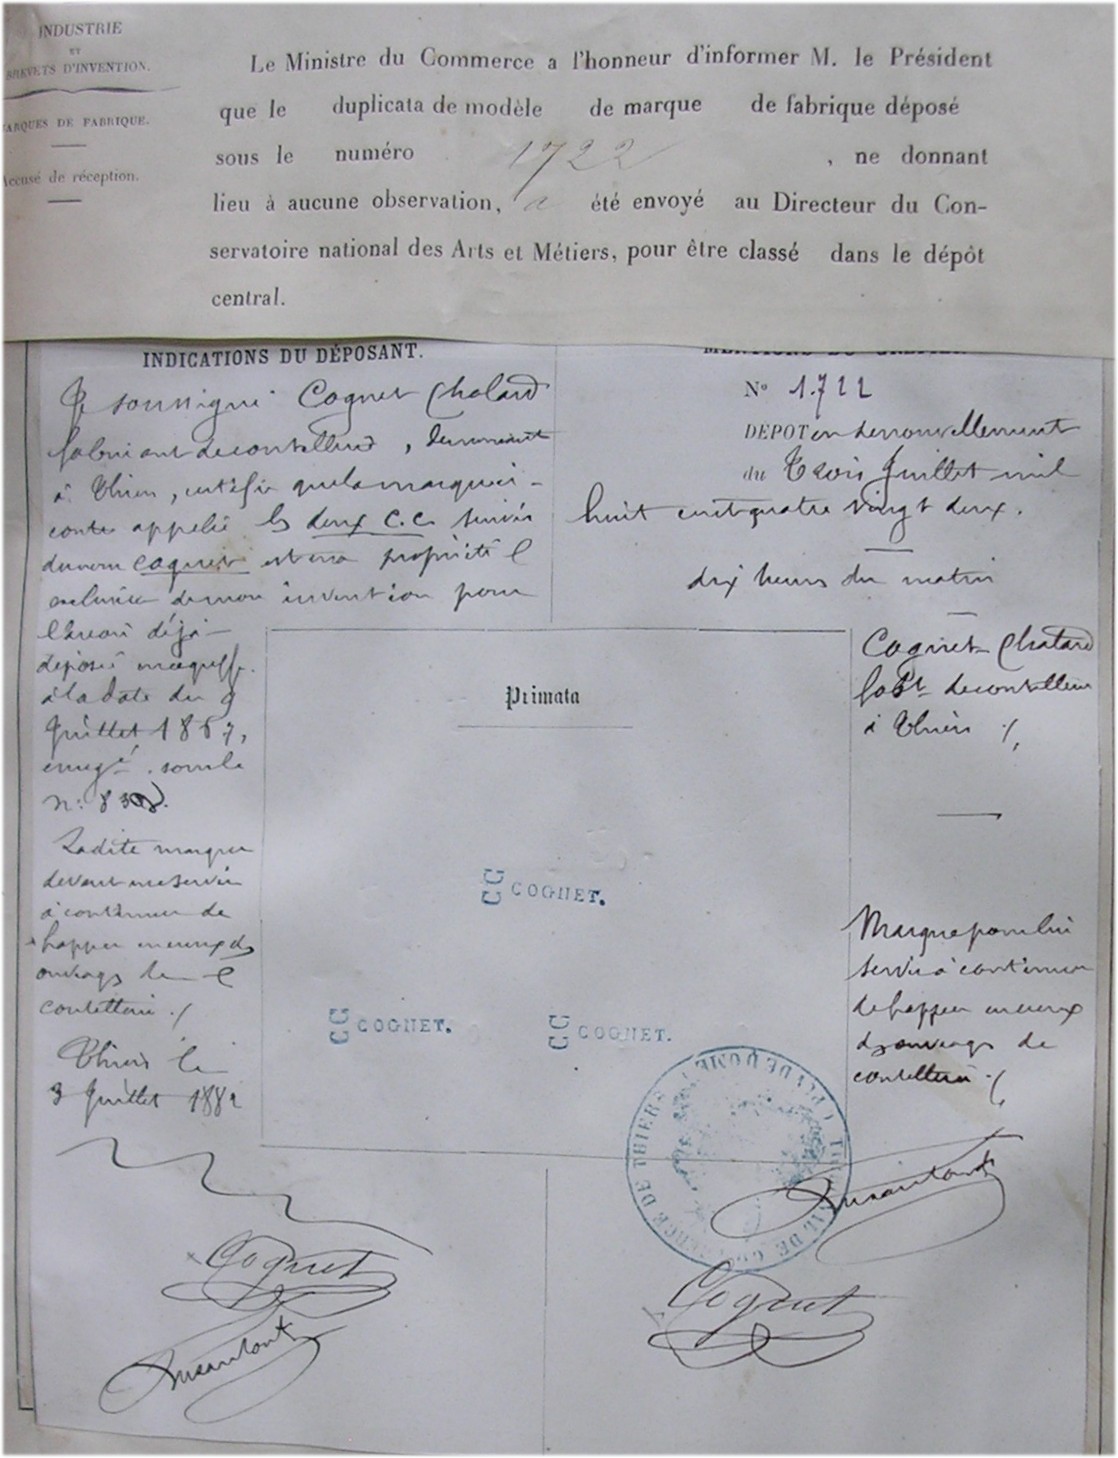 INDUSTRIE
ET
BREVETS D'INVENTION.
MARQUES DE FABRIQUE.
Accusé de réception.
Le Ministre du Commerce a l'honneur d'informer M. le Président
que le duplicata de modèle de marque de fabrique déposé
sous le numéro 1722 , ne donnant
lieu à aucune observation, a été envoyé au Directeur du Con-
servatoire national des Arts et Métiers, pour être classé dans le dépôt
central.
INDICATIONS DU DÉPOSANT.
Je soussigné Cognet Chatard
fabricant de coutellerie, demeurant
à Thiers, certifie que la marque ci-
contre appelée les deux C.C. suivis
du nom Cognet est ma propriété
exclusive de mon invention pour
l'avoir déjà
déposée au greffe
à la date du 9
Juillet 1867,
enregé sous le
n: 832.
Ladite marque
devant me servir
à continuer de
frapper mes
ouvrages de
coutellerie ./.
Thiers le
3 Juillet 1882
Cognet
MENTIONS DU GREFFIER.
N° 1.722
DÉPOT en renouvellement
du Trois Juillet mil
huit cent quatre vingt deux.
dix heures du matin
Cognet-Chatard
fabt de coutellerie
à Thiers ./.
Marque pour lui
servir à continuer
de frapper
ouvrages de
coutellerie ./.
Primata
CC COGNET.
CC COGNET.
CC COGNET.
TRIBUNAL DE COMMERCE DE THIERS (PUY DE DOME)
Cognet